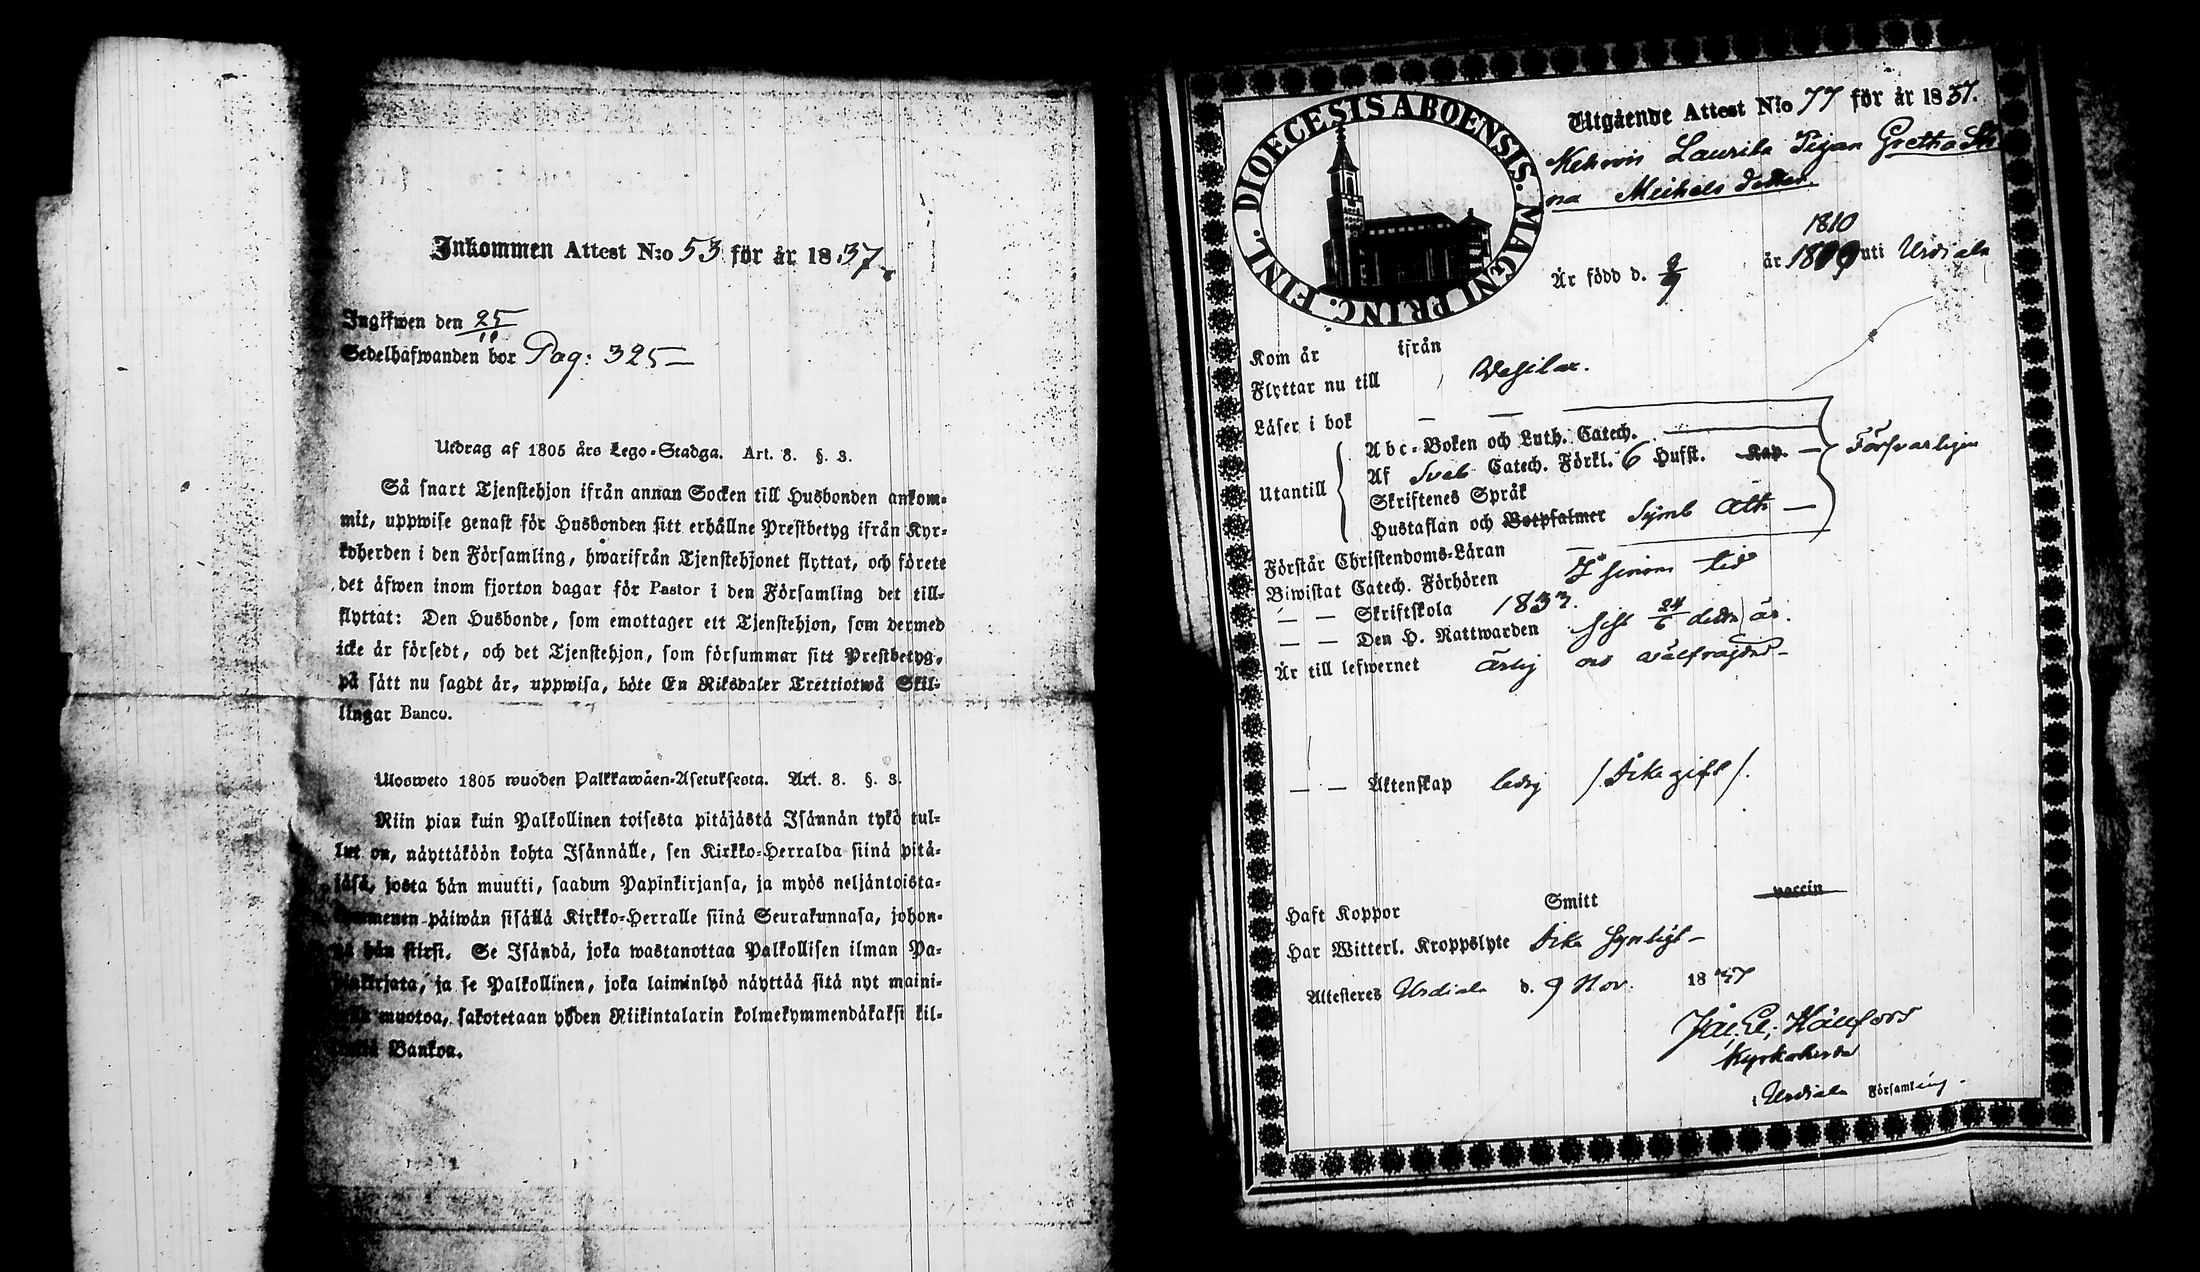 Inkommen Attest N:o 53 för år 1837.
Ingifwen den 25/11
Sedelhafwanden bor Pag: 325 —
Utdrag af 1805 års Lego-Stadga. Art. 8. §. 3.
Så snart Tjenstehjon ifrån annan Socken till Husbonden ankom-
mit, uppwise genast för Husbonden sitt erhållne Prestbetyg ifrån Kyr-
koherden i den Församling, hwarifrån Tjenstehjonet flyttat, och förete
det äfwen inom fjorton dagar för Pastor i den Församling det till-
flyttat: Den Husbonde, som emottager ett Tjenstehjon, som dermed
icke är försedt, och det Tjenstehjon, som försummar sitt Prestbetyg,
på sätt nu sagdt är, uppwisa, böte En Riksdaler Trettiotwå Skil-
lingar Banco.
Ulosweto 1805 wuoden Palkkawäen-Asetuksesta. Art. 8. §. 3.
Niin pian kuin Palkollinen toisesta pitäjästä Isännän tykö tul-
lut on, näyttäköön kohta Isännälle, sen Kirkko-Herralda siinä pitä-
jäsä, josta hän muutti, saadun Papinkirjansa, ja myös neljäntoista-
kymmenen päiwän sisällä Kirkko-Herralle siinä Seurakunnasa, johon-
ka hän siirsi. Se Isändä, joka wastanottaa Palkollisen ilman Pa-
pinkirjata, ja se Palkollinen, joka laiminlyö näyttää sitä nyt maini-
muotoa, sakotetaan yhden Riikintalarin kolmekymmendäkaksi kil-
Bankoa.
DIOECESIS ABOENSIS. MAGNI PRINC. FINL.
Utgående Attest N:o 77 för år 1837.
Kehrois Laurila Pigan Gretha Sti
na Michels dotter.
1810
Är född d. 9/9 år 1809 uti Urdiala
Kom år ifrån
Flyttar nu till Wesilax.
Läser i bok — —
Utantill
Abc-Boken och Luth. Catech.
Af Sveb Catech. Förkl. 6 Husst. Kap. — Försvarligen
Skriftenes Språk
Hustaflan och Botpsalmer Symb Ath —
Förstår Christendoms-Läran —
Biwistat Catech. Förhören I sinom tid
— — Skriftskola 1833.
— — Den H. Nattwarden sist 24/6 detta år.
Är till lefwernet ärlig och wälfrägdad —
— — Äktenskap ledig /: Icke gift /.
Haft Koppor Smitt vaccin
Har Witterl. Kroppslyte Icke synligt —
Attesteres Urdiala d. 9 Nov. 1837
Kyrkoherde
i Urdiala Församling.